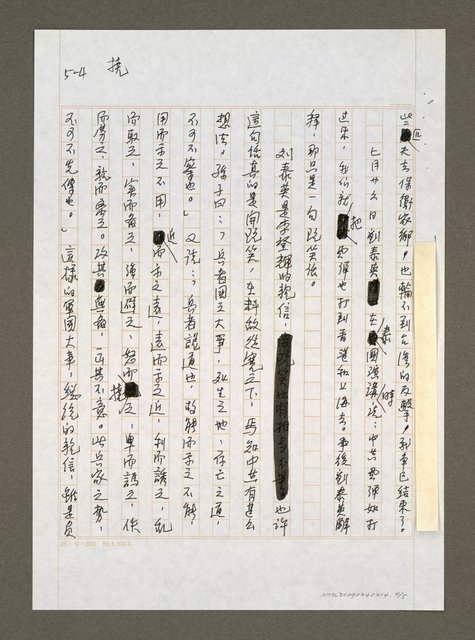 些匹夫去保衛家鄉，也輪不到在後的反擊，戰事已結束了。
七月廿六日劉泰英在泰國演講時說：中共要彈如打
過來，我們就把要彈也打到香港和上海去。而後劉泰英解
釋，那只是一句玩笑話。
劉泰英是李登輝的親信，也許
這句話真的是開玩笑，在料敵從寬之下，焉知中共有甚麼
想法。孫子曰：「兵者國之大事，死生之地，存亡之道，
不可不察也。」又說：「兵者詭道也，故能而示之不能，
用而示之不用，近而示之遠，遠而示之近，利而誘之，亂
而取之，實而備之，強而避之，怒而撓之，卑而驕之，佚
而勞之，親而離之。攻其無備，出其不意。此兵家之勢，
不可不先傳也。」這樣的軍國大事，總統的親信，雖是負
撓
5-4
25×12=300 86.5.100本
NMTL20090240414 4/5